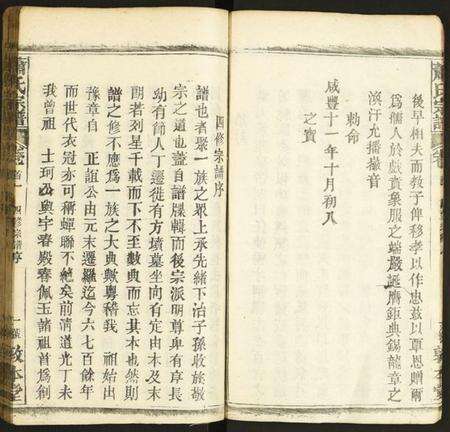 後早相夫而教子俾移孝以作忠茲以覃恩贈爾
為孺人於戲賁象服之端嚴誕膺鉅典錫龍章之
渙汗允播徽音
敕命
咸豐十一年十月初八
之寶
四修宗譜序
譜也者聚一族之眾上承先緒下治子孫收族敬
宗之道也蓋自譜牒輯而後宗派明尊卑有序長
幼有節人丁遷徙有方墳墓坐向有定由本及末
朗若列星千載而下不至數典而忘其本也然則
譜之修不應為一族之大典歟粵稽我 祖始出
豫章自 正誼公由元末遷羅迄今六七百餘年
而世代衣冠亦可稱蟬聯不絕矣前清道光丁未
我曾祖 士珂公與宇春殿春佩玉諸祖首為創
蕭氏宗譜
卷首
四修宗譜序
一
敦本堂